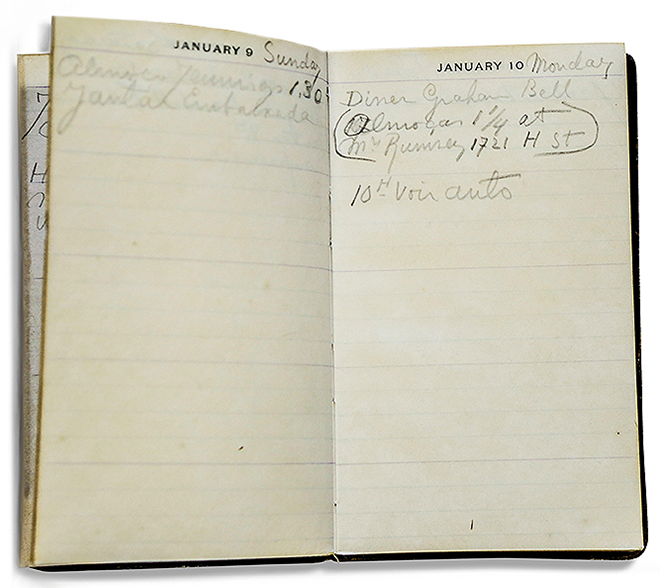 JANUARY 9 Sunday
Almoço Jennings 1,30
Jantar Embaixada
JANUARY 10 Monday
Diner Graham Bell
Almoças 1 1/4 at
Mrs Rumsey 1721 H St
10H Voir auto